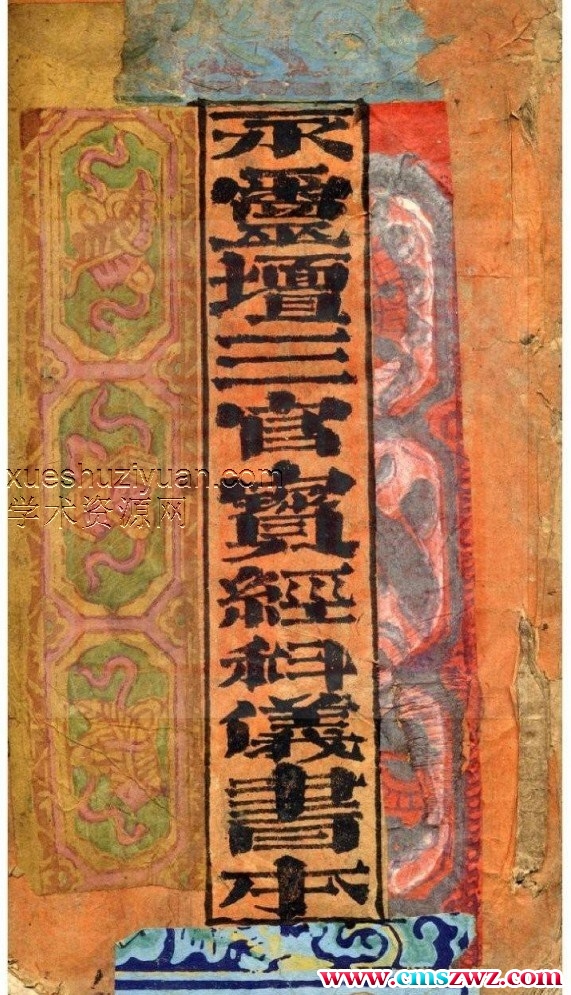 永靈壇三官寳經科儀書本
xueshuziyuan.com
学术资源网
www.cmszwz.com